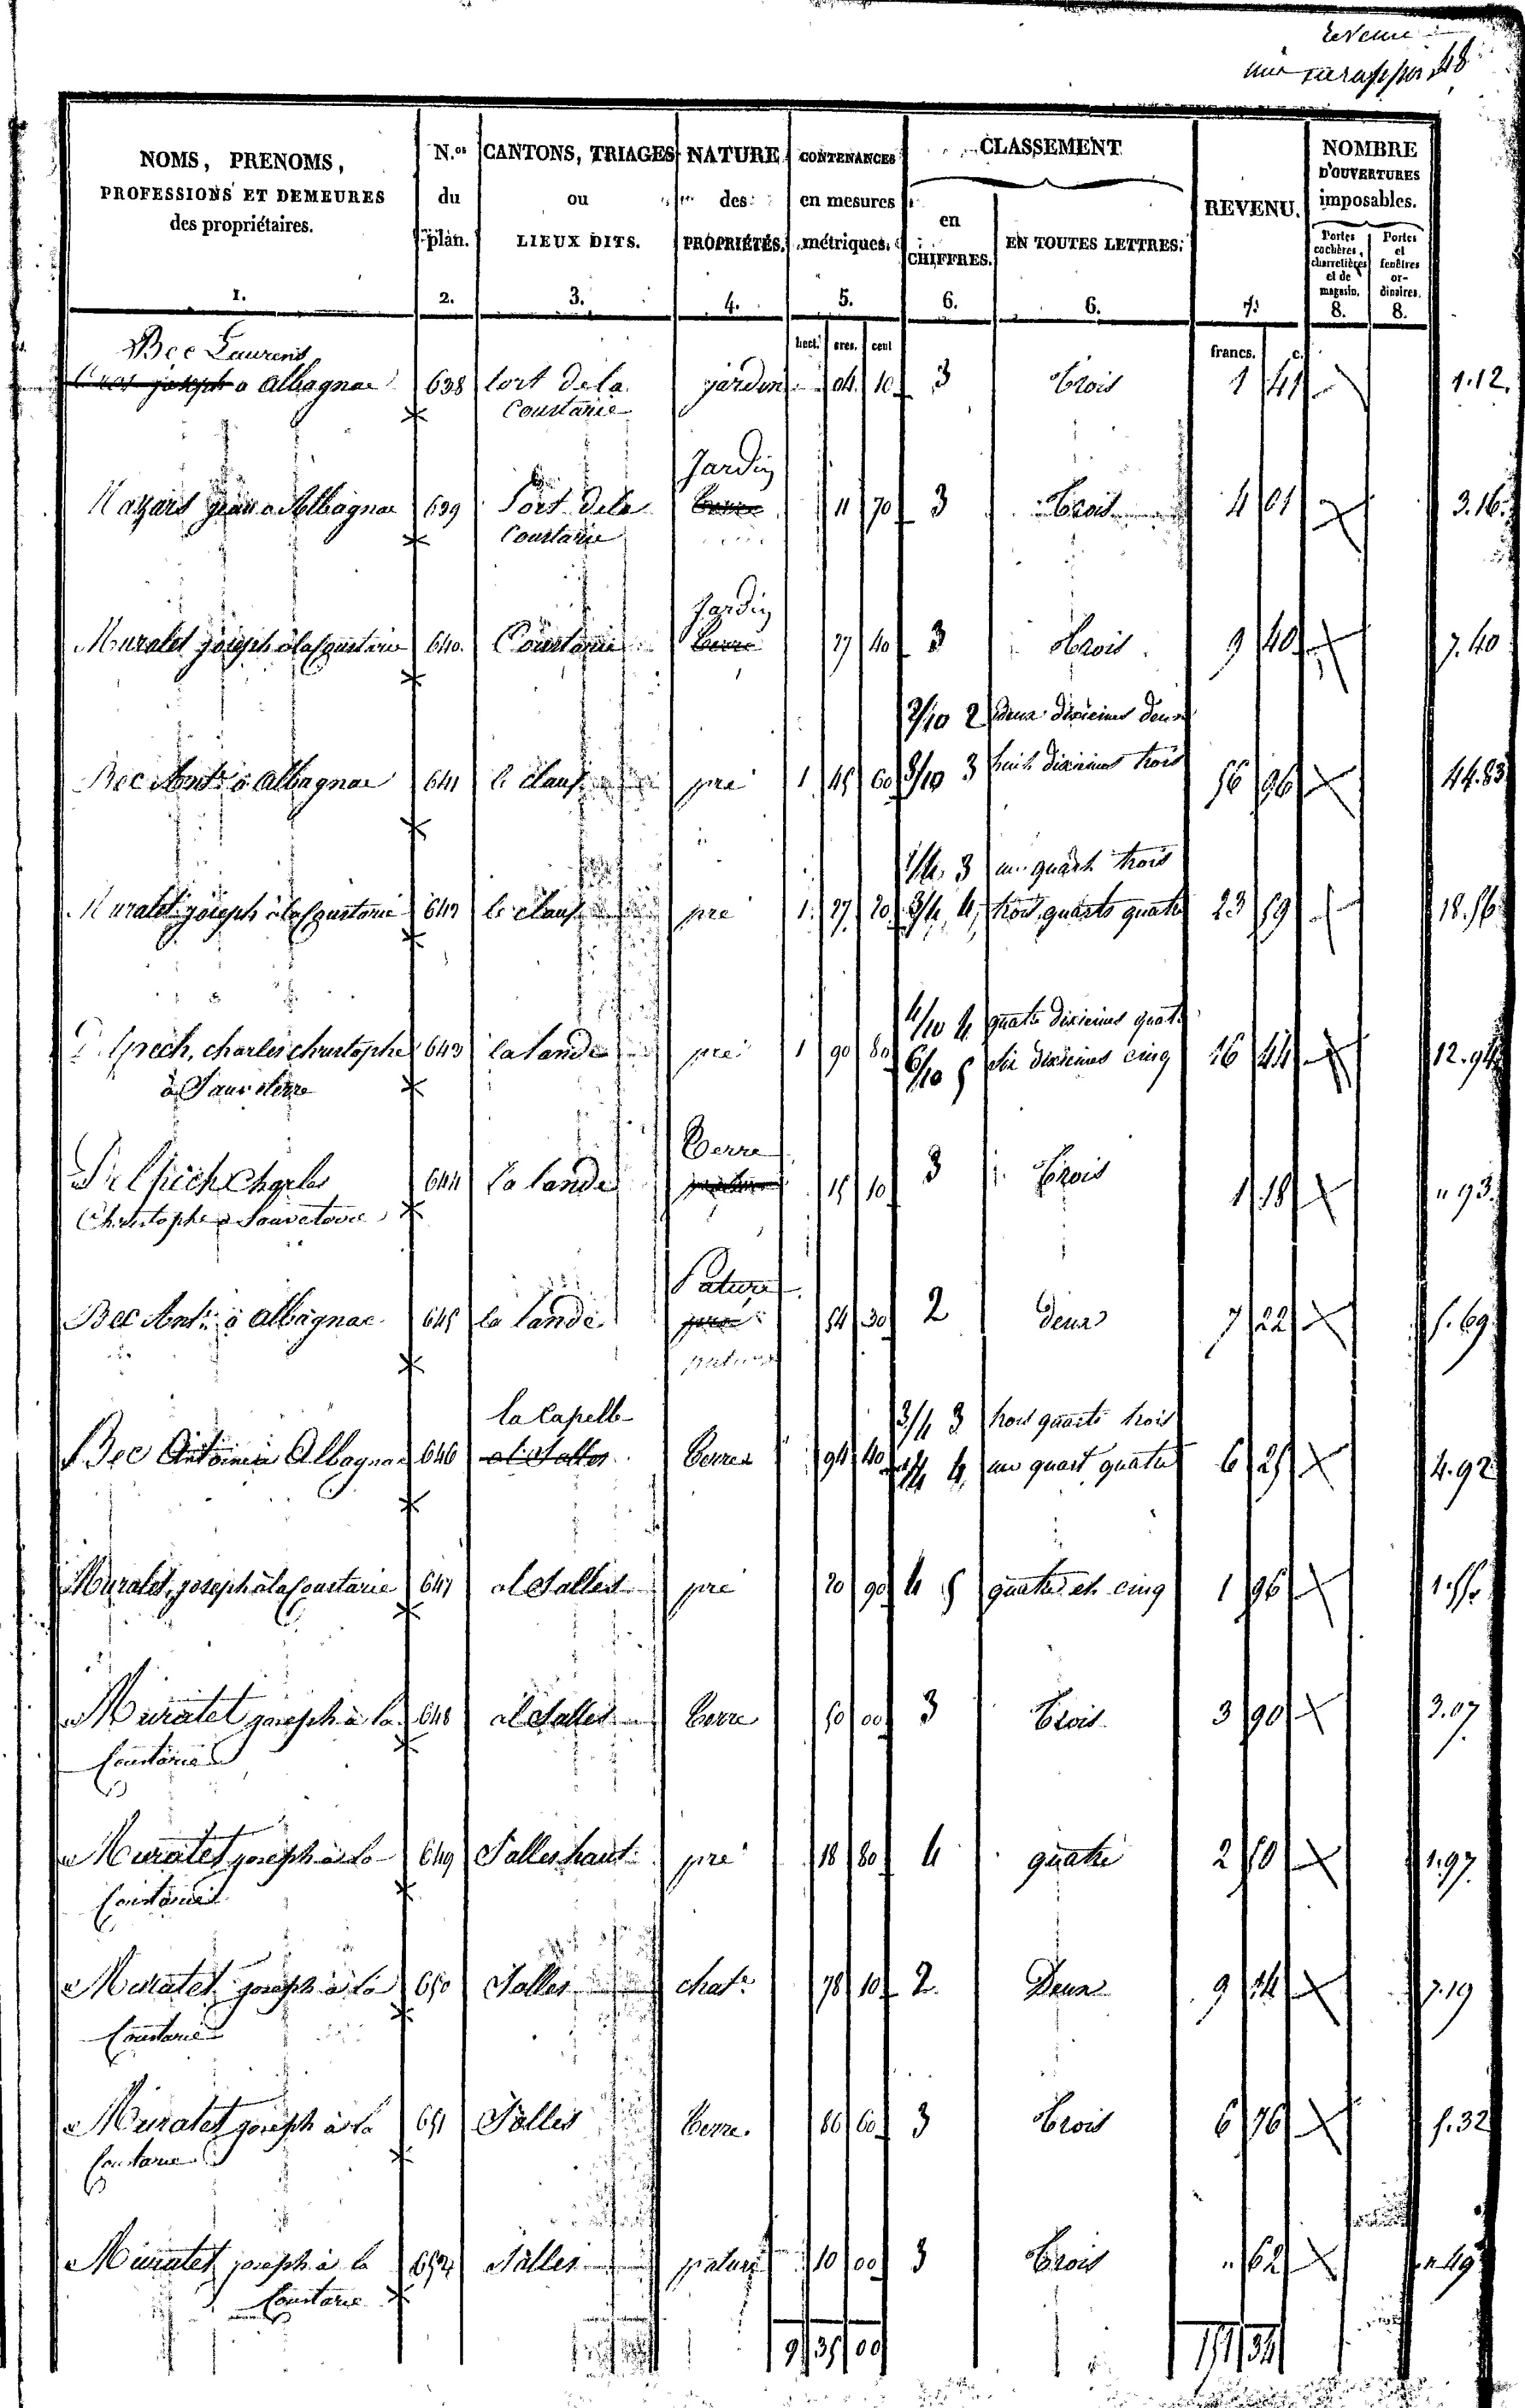 revenu
48
NOMS, PRENOMS, PROFESSIONS ET DEMEURES des propriétaires. 1.
N.os du plan. 2.
CANTONS, TRIAGES ou LIEUX DITS. 3.
NATURE des PROPRIÉTÉS. 4.
CONTENANCES en mesures métriques. 5.
CLASSEMENT
en CHIFFRES. 6.
EN TOUTES LETTRES. 6.
REVENU. 7.
NOMBRE D'OUVERTURES imposables.
Portes cochères, charretières et de magasin. 8.
Portes et fenêtres ordinaires. 8.
hect. ares. cent
francs. c.
Bec Laurens
joseph a albagnac 638 lort de la jardin 04 10 3 trois 1 41 1.12.
Coustarie
Jardin
Mazars jean a Albagnac 639 Lort de la terre 11 70 3 trois 4 01 3.16.
Coustarie
Jardin
Muratet joseph à la Coustarie 640. Coustarie terre 27 40 3 trois 9 40 7.40
2/10 2 deux dixiemes deux
Bec Ant.e à albagnac 641 le claux pre 1 45 60 8/10 3 huit dixiemes trois 56 96 44.83
1/4 3 un quart trois
Muratet joseph à la Coustarie 642 le claux pre 1 27 20 3/4 4 trois quarts quatre 23 59 18.56
4/10 4 quatre dixiemes quat.
Delpech, charles christophe 643 la lande pre 1 90 80 6/10 5 six dixiemes cinq 16 44 12.94
à Sauveterre
Terre
Delpech Charles 644 la lande 15 10 3 trois 1 18 " 93.
Christophe a Sauveterre
Pature
Bec Ant.e à albagnac 645 la lande pre 54 30 2 deux 7 22 5.69
pature
la Capelle 3/4 3 trois quarts trois
Bec Antoine a Albagnac 646 al Salles terre 94 40 1/4 4 un quart quatre 6 25 4.92
Muratet, joseph à la Coustarie 647 al Salles pre 20 90 4 5 quatre et cinq 1 96 1.55
Muratet joseph à la 648 al Salles terre 50 00 3 trois 3 90 3.07
Coustarie
Muratet joseph à la 649 Salles haut pre 18 80 4 quatre 2 50 1.97
Coustarie
Muratet joseph à la 650 Salles chat.e 78 10 2 Deux 9 14 7.19
Coustarie
Muratet joseph à la 651 Salles terre 86 60 3 trois 6 76 5.32
Coustarie
Muratet joseph à la 652 Salles pature 10 00 3 trois " 62 " 49
Coustarie
9 35 00 151 34